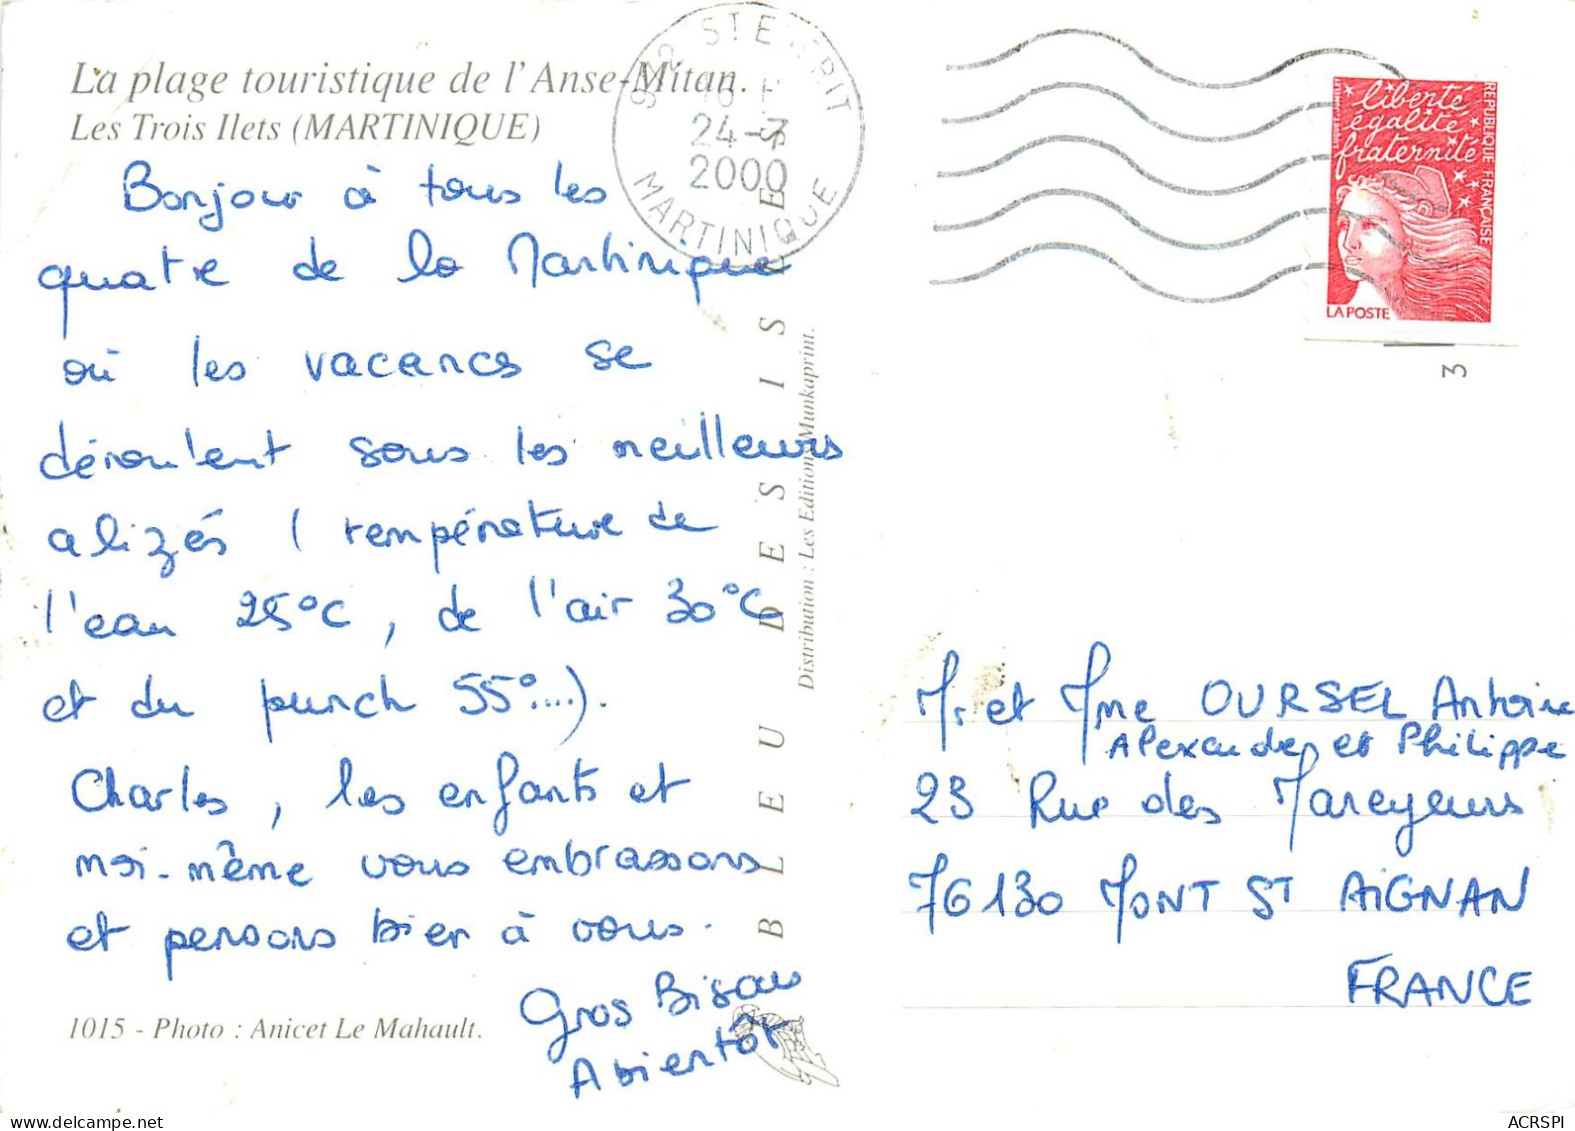 La plage touristique de l'Anse-Mitan.
Les Trois Ilets (MARTINIQUE)
Bonjour à tous les
quatre de la Martinique
où les vacances se
déroulent sous les meilleurs
alizés ( température de
l'eau 25°C, de l'air 30°C
et du punch 55°....).
Charles, les enfants et
moi-même vous embrassons
et pensons bien à vous.
Gros Bisous
A bientôt
1015 - Photo : Anicet Le Mahault.
BLEU DES ISLES
Distribution : Les Editions Munkaprint.
972 STE
24-3
2000
MARTINIQUE
liberté
égalité
fraternité
REPUBLIQUE FRANÇAISE
LA POSTE
3
Mr et Mme OURSEL Antoine
Alexandre et Philippe
23 Rue des Mareyeurs
76130 MONT ST AIGNAN
FRANCE
delcampe.net
ACRSPI